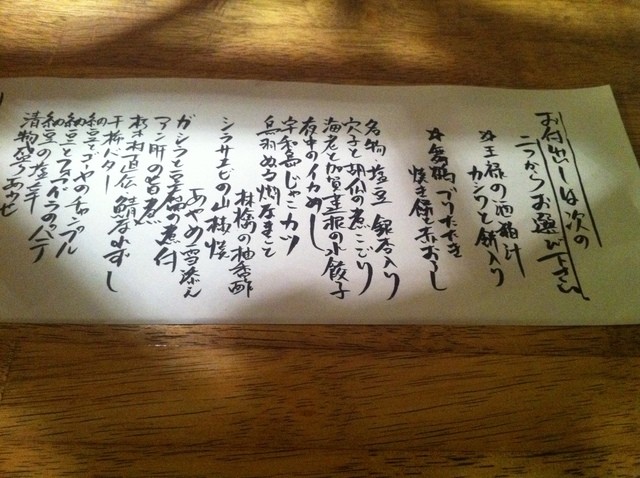 お付出しは次の
二つからお選び下さい
☆王祿の酒粕汁
カシワと餅入り
☆舞鶴ブリたたき
焼き葱と赤おろし
名物・塩豆 銀杏入り
穴子と胡瓜の煮こごり
海老と加賀蓮根の水餃子
夜中のイカめし
宇和島じゃこカツ
鳥羽ぬる燗なまこ
林檎の柚香酢
シラサエビの山椒焼
あやめ雪添え
ガシラと豆腐の煮付
アン肝の旨煮
朽木村直伝 鯖なれずし
干柿バター
納豆ゴーヤのチャンプル
納豆とフォアグラのパテ
納豆の
漬物盛りあわせ